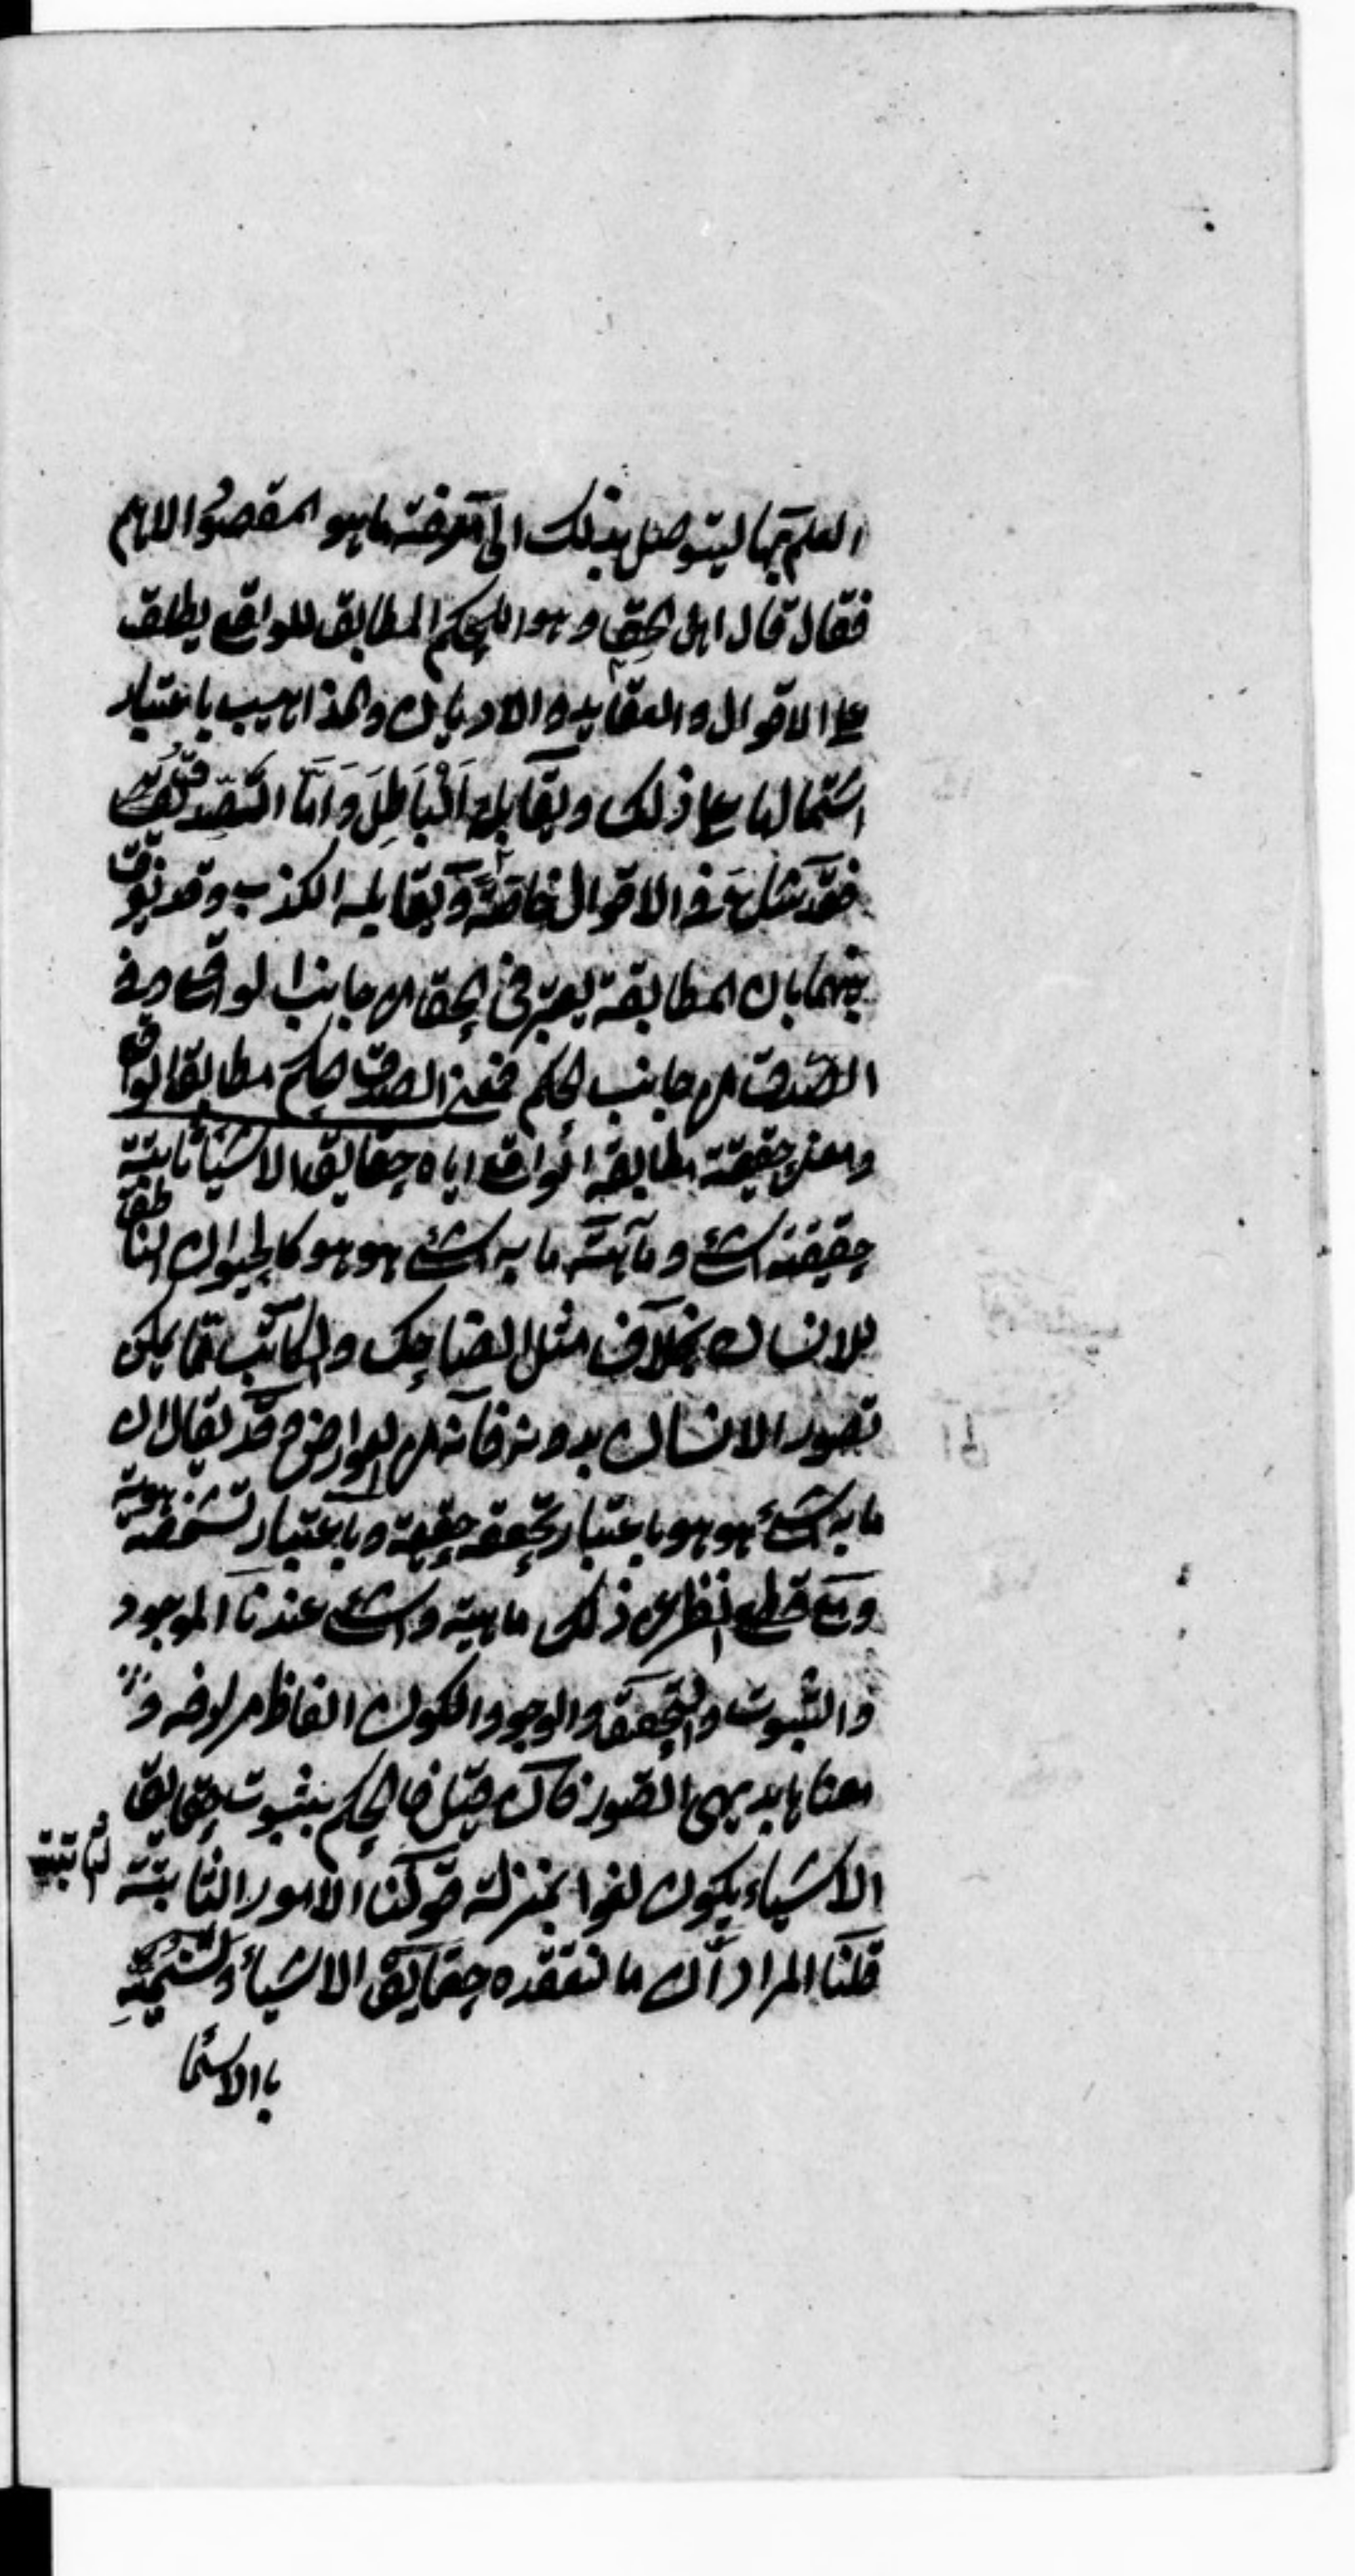 العلم بهما ليتوصل بذلك الى معرفة ما هو المقصود الاهم
فقال قال اهل الحق و هو الحكم المطابق للواقع يطلق
على الاقوال والعقايد والاديان والمذاهب باعتبار
اشتمالها على ذلك ويقابله الباطل واما الصدق
فقد شاع في الاقوال خاصة ويقابله الكذب وقد يفرق
بينهما بان المطابقة يعتبر في الحق من جانب الواقع وفي
الصدق من جانب الحكم فمعنى الصدق الحكم مطابقة الواقع
ومعنى حقيقته مطابقة الواقع اياه حقايق الاشياء ثابتة
حقيقة الشئ وماهيته ما به الشئ هو هو كالحيوان الناطق
للانسان بخلاف مثل الضاحك والكاتب مما يمكن
تصور الانسان بدونه فانه من العوارض وقد يقال ان
ما به الشئ هو هو باعتبار تحققه حقيقة وباعتبار تشخصه هوية
ومع قطع النظر عن ذلك ماهية والشئ عندنا الموجود
والثبوت والتحقق والوجود والكون الفاظ مترادفة
معناها بديهي التصور فان قيل فالحكم بثبوت حقايق
الاشياء يكون لغوا بمنزلة قولنا الامور الثابتة ثابتة
قلنا المراد ان ما نعتقده حقايق الاشياء ونسميه
بالاسما